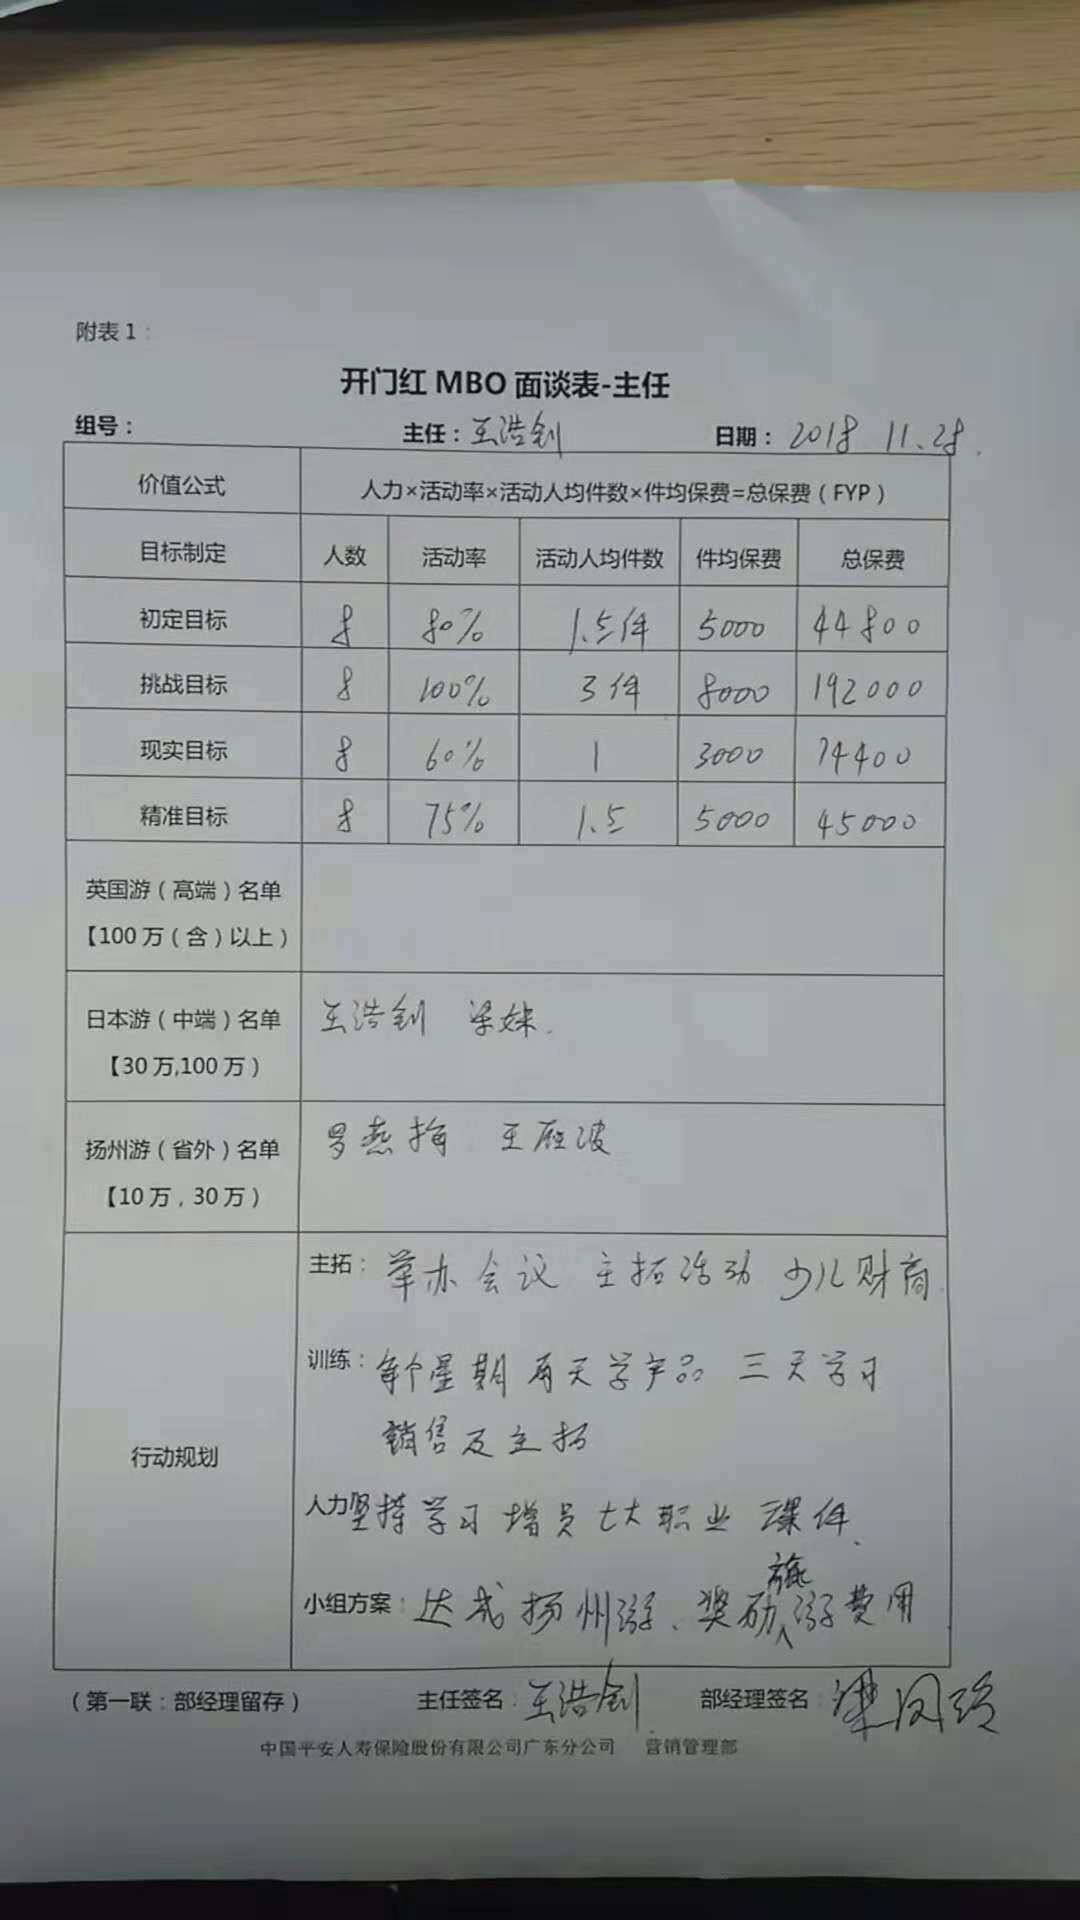 附表 1：
开门红 MBO 面谈表-主任
组号： 主任：王浩钊 日期：2018 11.28.
价值公式 人力×活动率×活动人均件数×件均保费=总保费（FYP）
目标制定 人数 活动率 活动人均件数 件均保费 总保费
初定目标 8 80% 1.5件 5000 44800
挑战目标 8 100% 3件 8000 192000
现实目标 8 60% 1 3000 14400
精准目标 8 75% 1.5 5000 45000
英国游（高端）名单
【100万（含）以上）
日本游（中端）名单 王浩钊 梁妹.
【30万,100万）
扬州游（省外）名单 罗燕梅 王雁波
【10万，30万）
行动规划
主拓： 举办会议 主拓活动 少儿财商.
训练： 每个星期 两天学产品 三天学习
销售及主拓
人力 坚持学习增员七大职业 课件.
小组方案： 达成扬州游、奖励旅游费用
（第一联：部经理留存） 主任签名：王浩钊 部经理签名：
中国平安人寿保险股份有限公司广东分公司 营销管理部